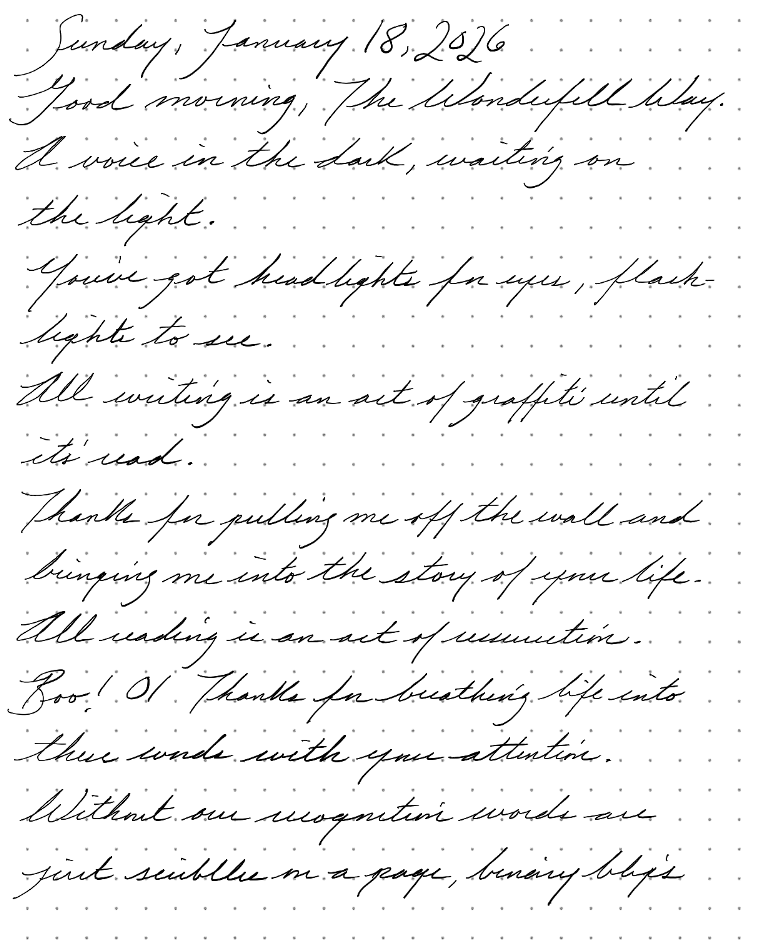 Sunday, January 18, 2026
Good morning, The Wonderfull Way.
A voice in the dark, waiting on
the light.
You've got headlights for eyes, flash-
lights to see.
All writing is an act of graffiti until
it's read.
Thanks for pulling me off the wall and
bringing me into the story of your life.
All reading is an act of resurrection.
Boo! 01 Thanks for breathing life into
these words with your attention.
Without our recognition words are
just scribbles on a page, binary blips